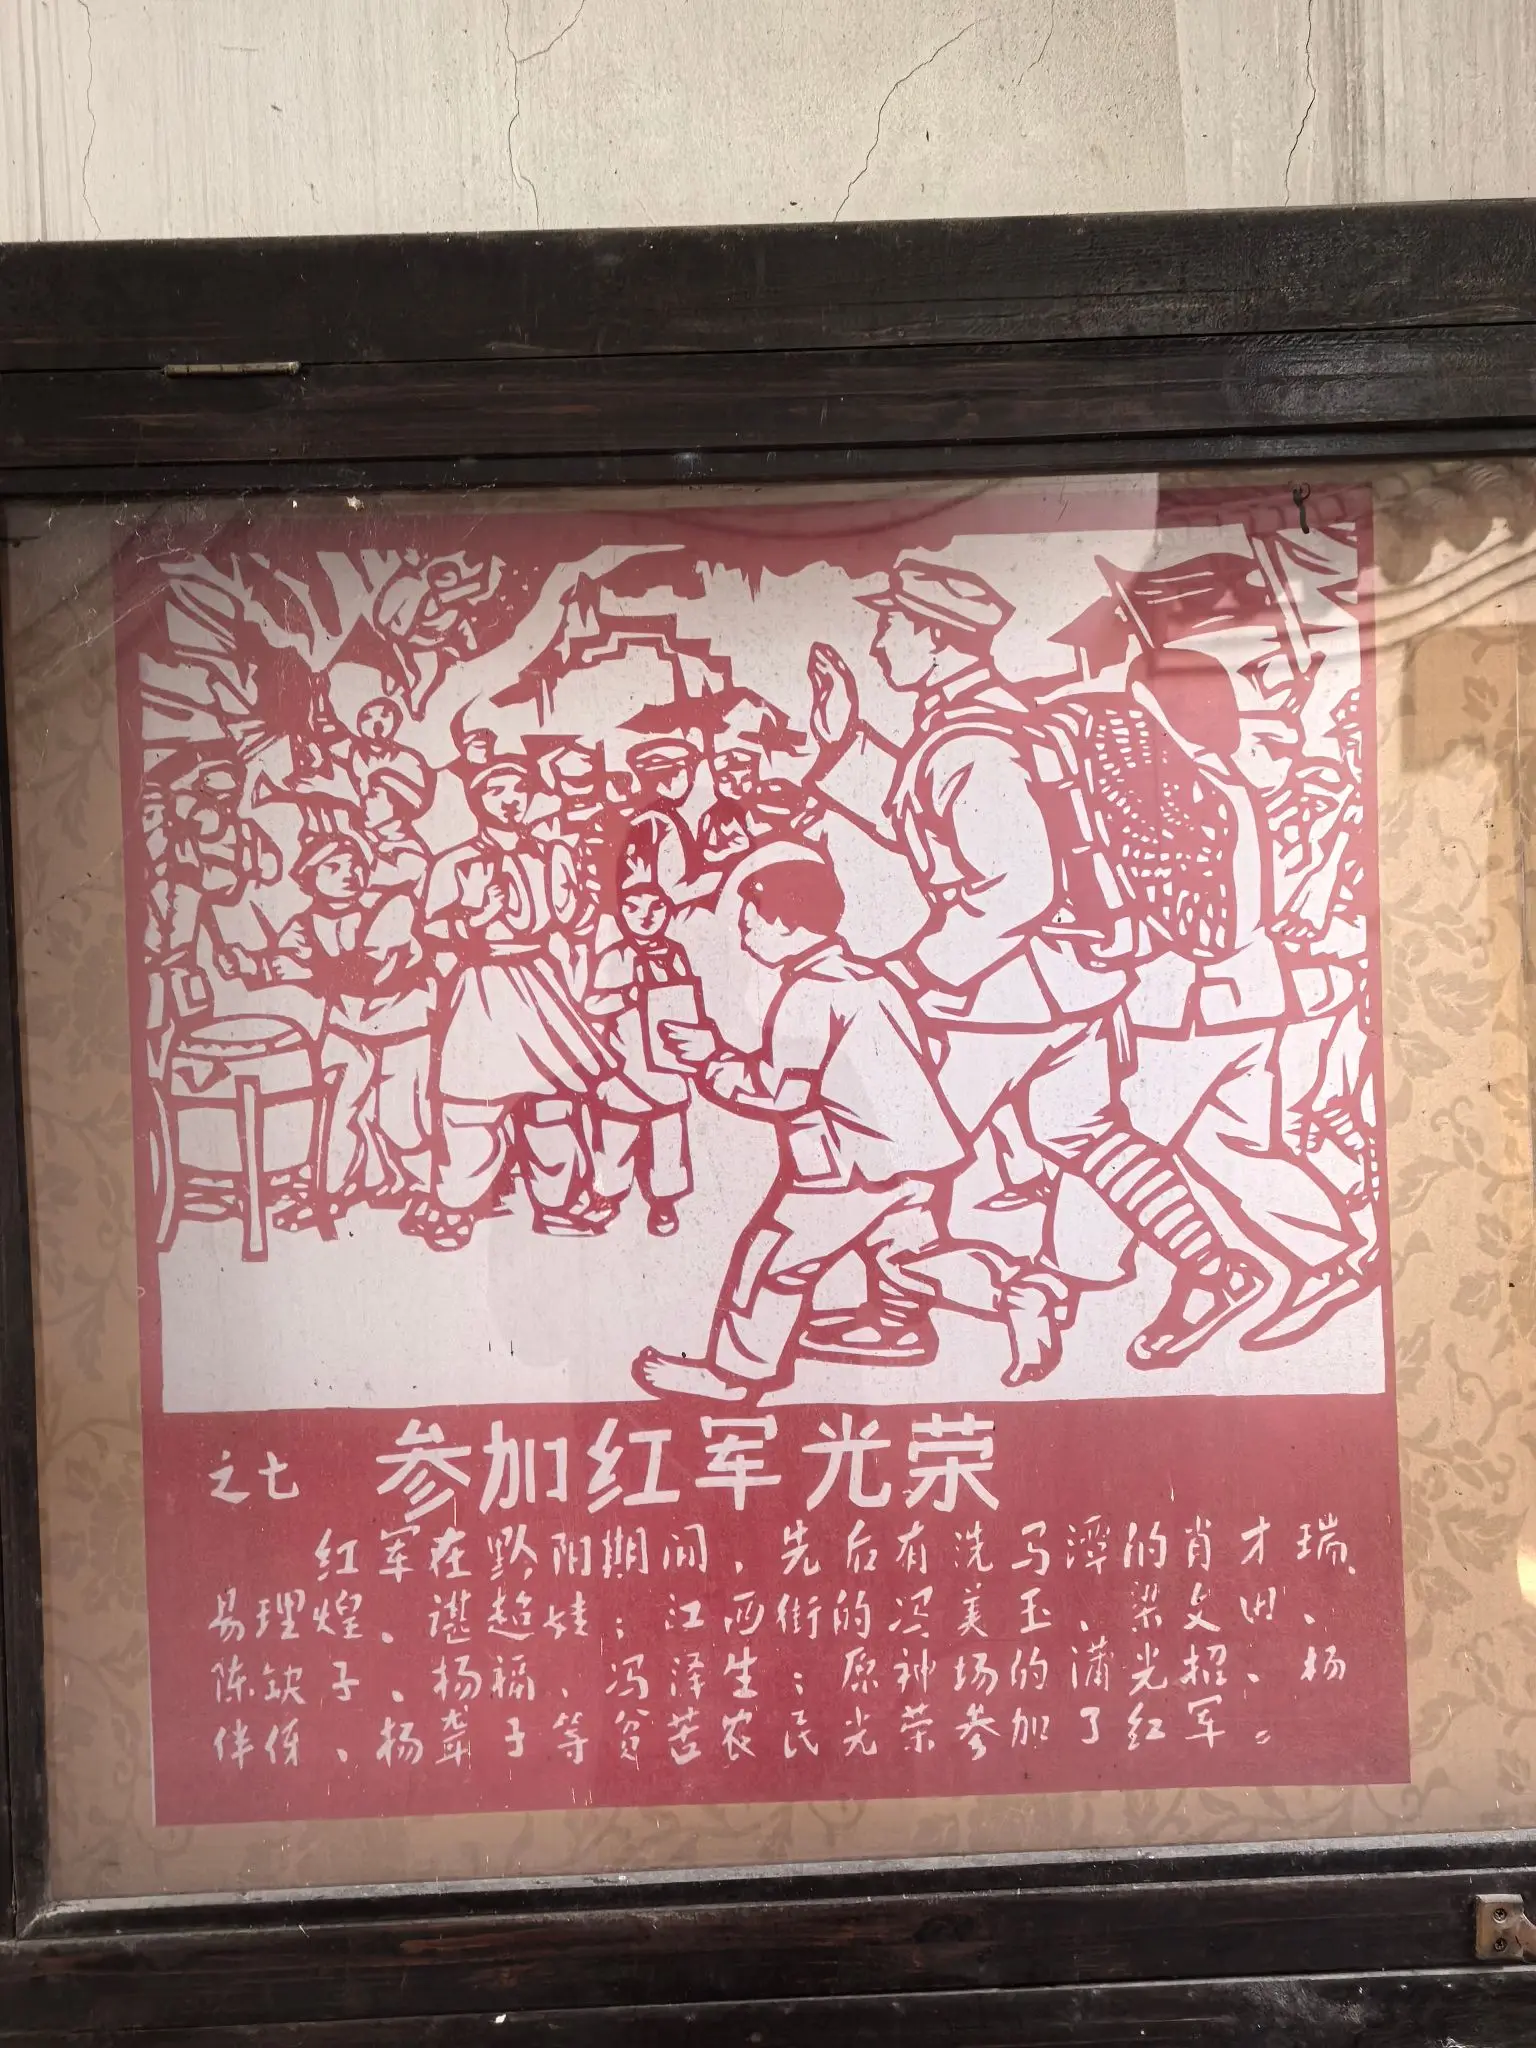 之七 参加红军光荣
红军在黔阳期间，先后有洗马潭的肖才瑞、
易理煌、谌超娃；江西街的冯美玉、梁文凼、
陈缺子、杨福、冯泽生；原神场的潇光招、杨
伴伢、杨聋子等贫苦农民光荣参加了红军。